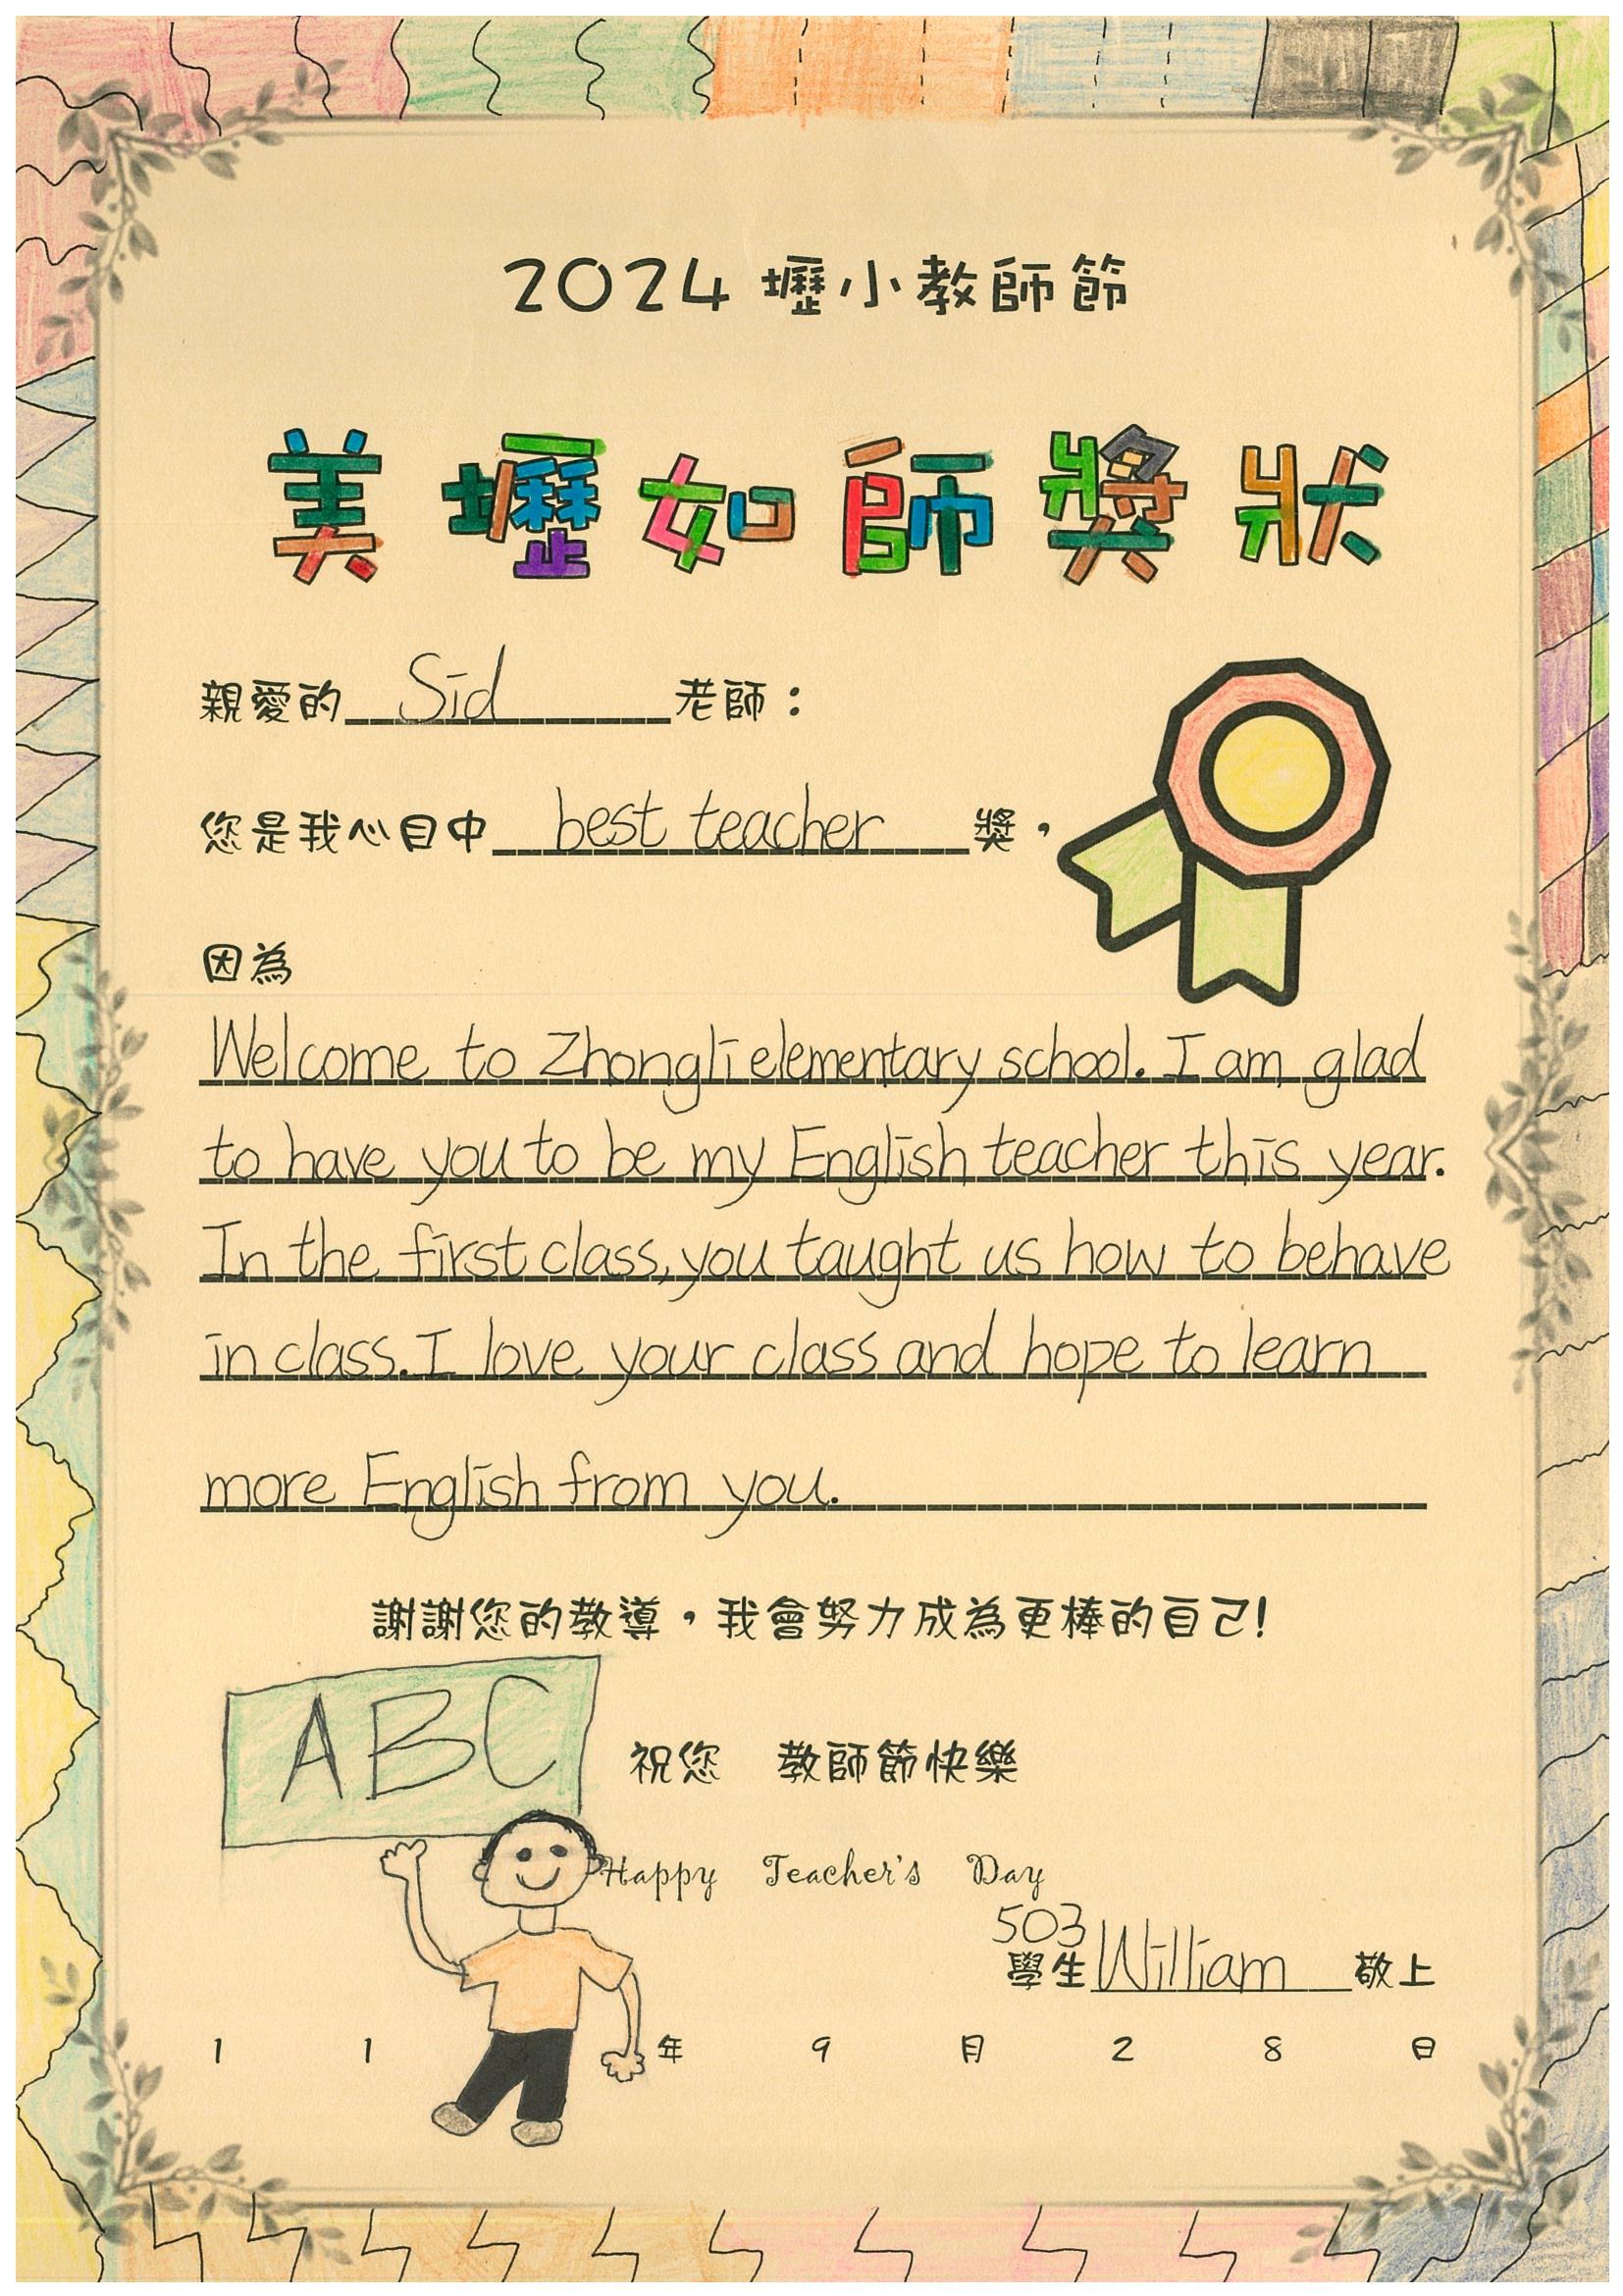 2024 壢小教師節
美壢如師獎狀
親愛的 Sid 老師：
您是我心目中 best teacher 獎，
因為
Welcome to Zhongli elementary school. I am glad
to have you to be my English teacher this year.
In the first class, you taught us how to behave
in class. I love your class and hope to learn
more English from you.
謝謝您的教導，我會努力成為更棒的自己!
ABC
祝您 教師節快樂
Happy Teacher's Day
503
學生 William 敬上
1 1 年 9 月 2 8 日